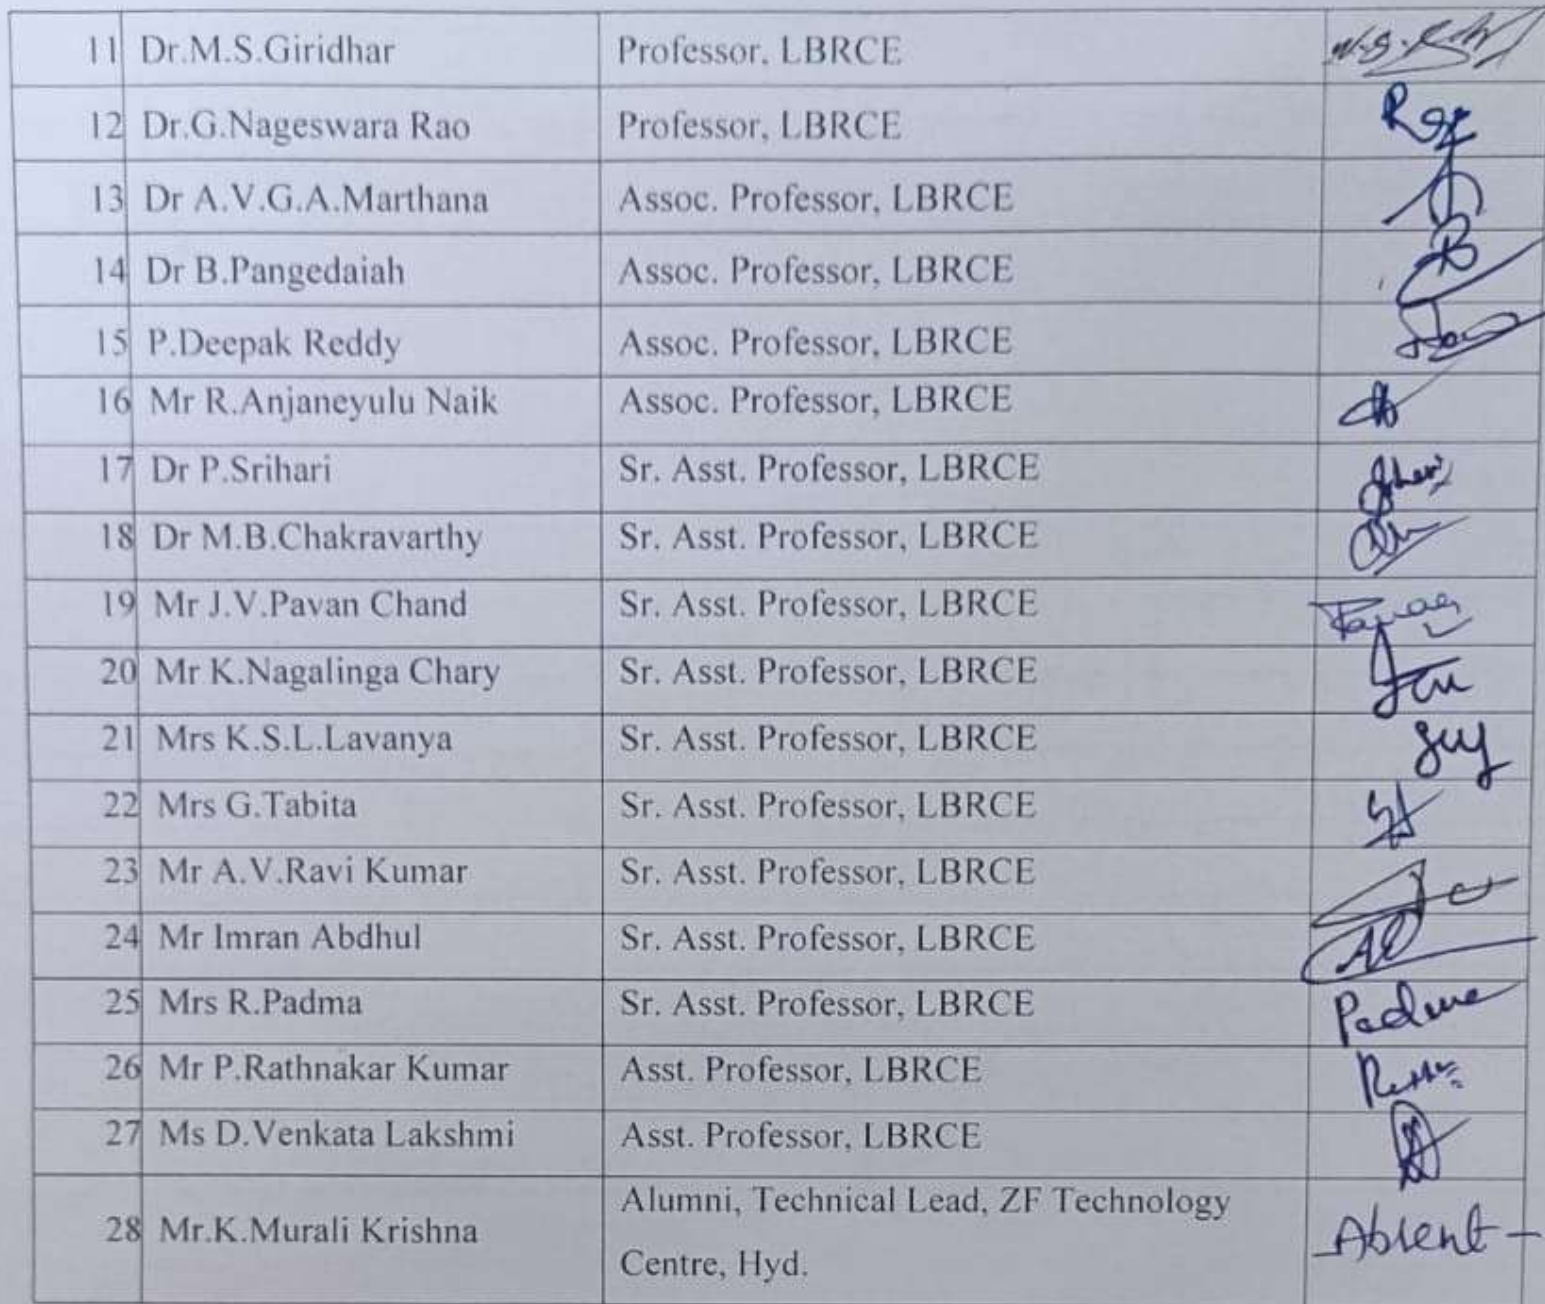 11 Dr.M.S.Giridhar Professor, LBRCE
12 Dr.G.Nageswara Rao Professor, LBRCE
13 Dr A.V.G.A.Marthana Assoc. Professor, LBRCE
14 Dr B.Pangedaiah Assoc. Professor, LBRCE B
15 P.Deepak Reddy Assoc. Professor, LBRCE
16 Mr R.Anjaneyulu Naik Assoc. Professor, LBRCE
17 Dr P.Srihari Sr. Asst. Professor, LBRCE
18 Dr M.B.Chakravarthy Sr. Asst. Professor, LBRCE
19 Mr J.V.Pavan Chand Sr. Asst. Professor, LBRCE
20 Mr K.Nagalinga Chary Sr. Asst. Professor, LBRCE
21 Mrs K.S.L.Lavanya Sr. Asst. Professor, LBRCE
22 Mrs G.Tabita Sr. Asst. Professor, LBRCE
23 Mr A.V.Ravi Kumar Sr. Asst. Professor, LBRCE
24 Mr Imran Abdhul Sr. Asst. Professor, LBRCE
25 Mrs R.Padma Sr. Asst. Professor, LBRCE Padma
26 Mr P.Rathnakar Kumar Asst. Professor, LBRCE
27 Ms D.Venkata Lakshmi Asst. Professor, LBRCE
28 Mr.K.Murali Krishna Alumni, Technical Lead, ZF Technology Absent -
Centre, Hyd.